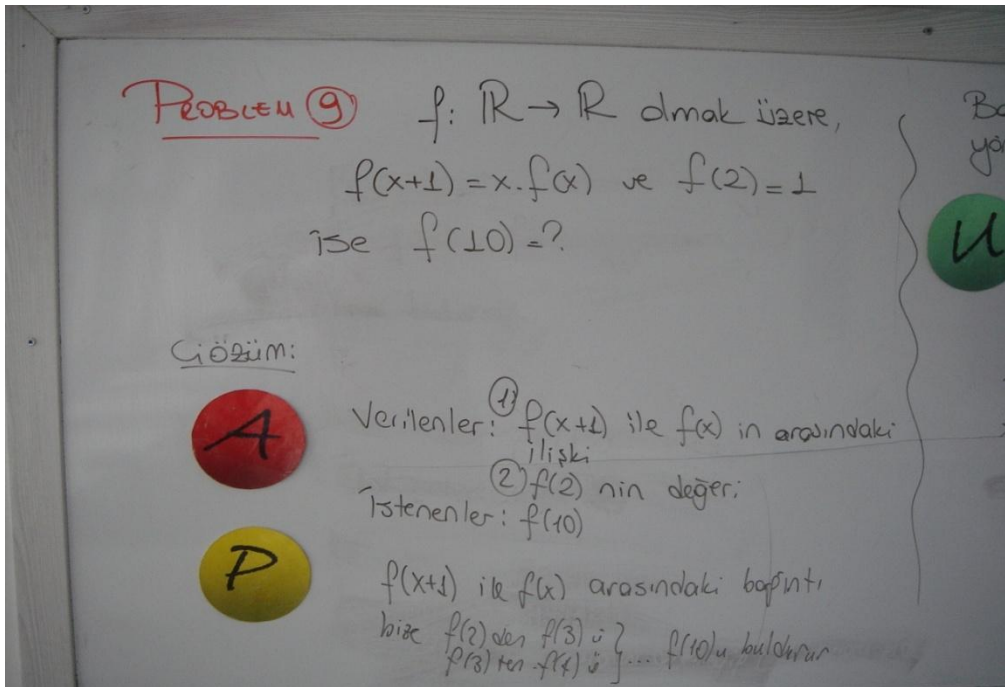 PROBLEM 9 f: ℝ → ℝ olmak üzere,
f(x+1) = x.f(x) ve f(2) = 1
ise f(10) = ?
Çözüm:
A
Verilenler: ① f(x+1) ile f(x) in arasındaki
ilişki
② f(2) nin değeri
İstenenler: f(10)
P
f(x+1) ile f(x) arasındaki bağıntı
bize f(2) den f(3) ü } ... f(10)u buldurur
f(3) ten f(4) ü
U